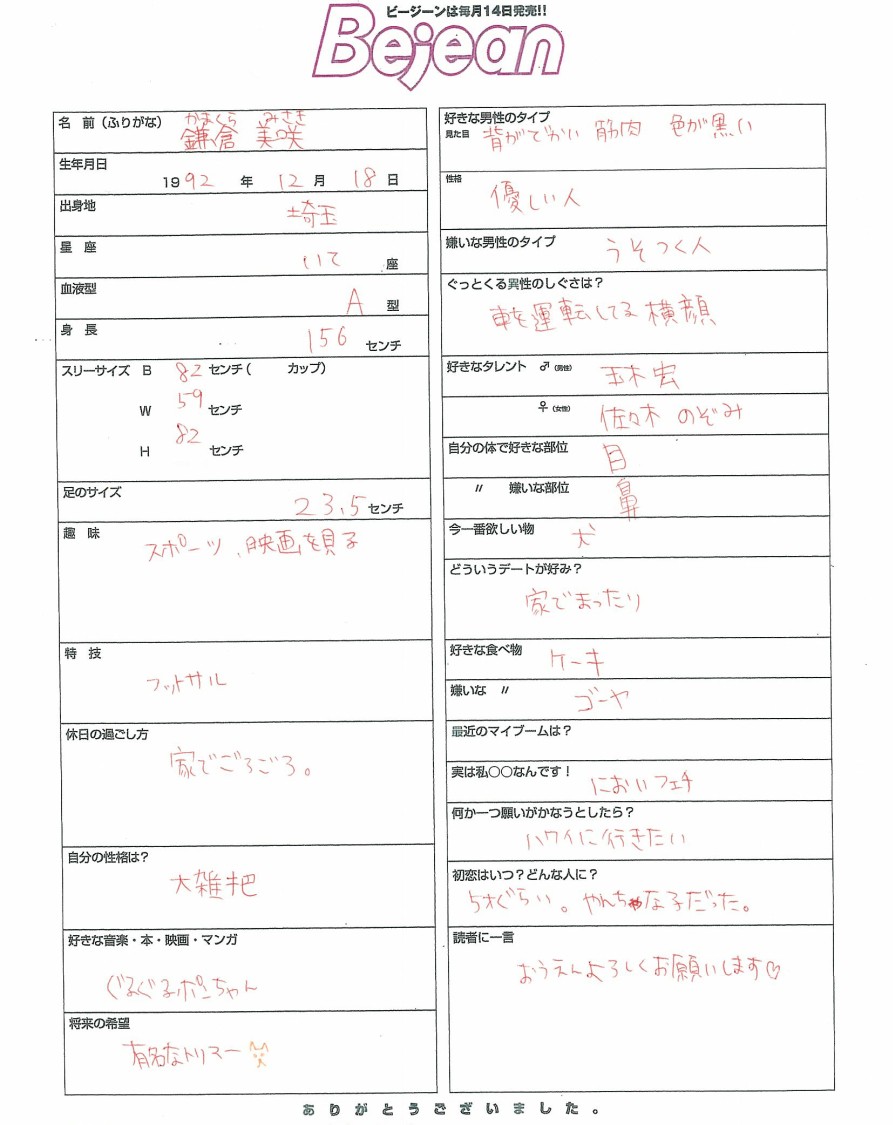 ビージーンは毎月14日発売!!
Bejean
名 前(ふりがな)
かまくら みさき
鎌倉 美咲
生年月日
1992 年 12月 18日
出身地
埼玉
星 座
いて 座
血液型
A 型
身 長
156 センチ
スリーサイズ B 82 センチ( カップ)
W 59 センチ
H 82 センチ
足のサイズ
23.5 センチ
趣 味
スポーツ、映画を見る
特 技
フットサル
休日の過ごし方
家でごろごろ。
自分の性格は?
大雑把
好きな音楽・本・映画・マンガ
ぐるぐるポンちゃん
将来の希望
有名なトリマー
好きな男性のタイプ
見た目 背がでかい 筋肉 色が黒い
性格
優しい人
嫌いな男性のタイプ うそつく人
ぐっとくる異性のしぐさは?
車を運転してる横顔
好きなタレント ♂(男性) 玉木宏
♀(女性) 佐々木 のぞみ
自分の体で好きな部位 目
〃 嫌いな部位 鼻
今一番欲しい物 犬
どういうデートが好み?
家でまったり
好きな食べ物 ケーキ
嫌いな 〃 ゴーヤ
最近のマイブームは?
実は私〇〇なんです!
においフェチ
何か一つ願いがかなうとしたら?
ハワイに行きたい
初恋はいつ?どんな人に?
5才ぐらい。やんちゃな子だった。
読者に一言
おうえんよろしくお願いします♡
ありがとうございました。